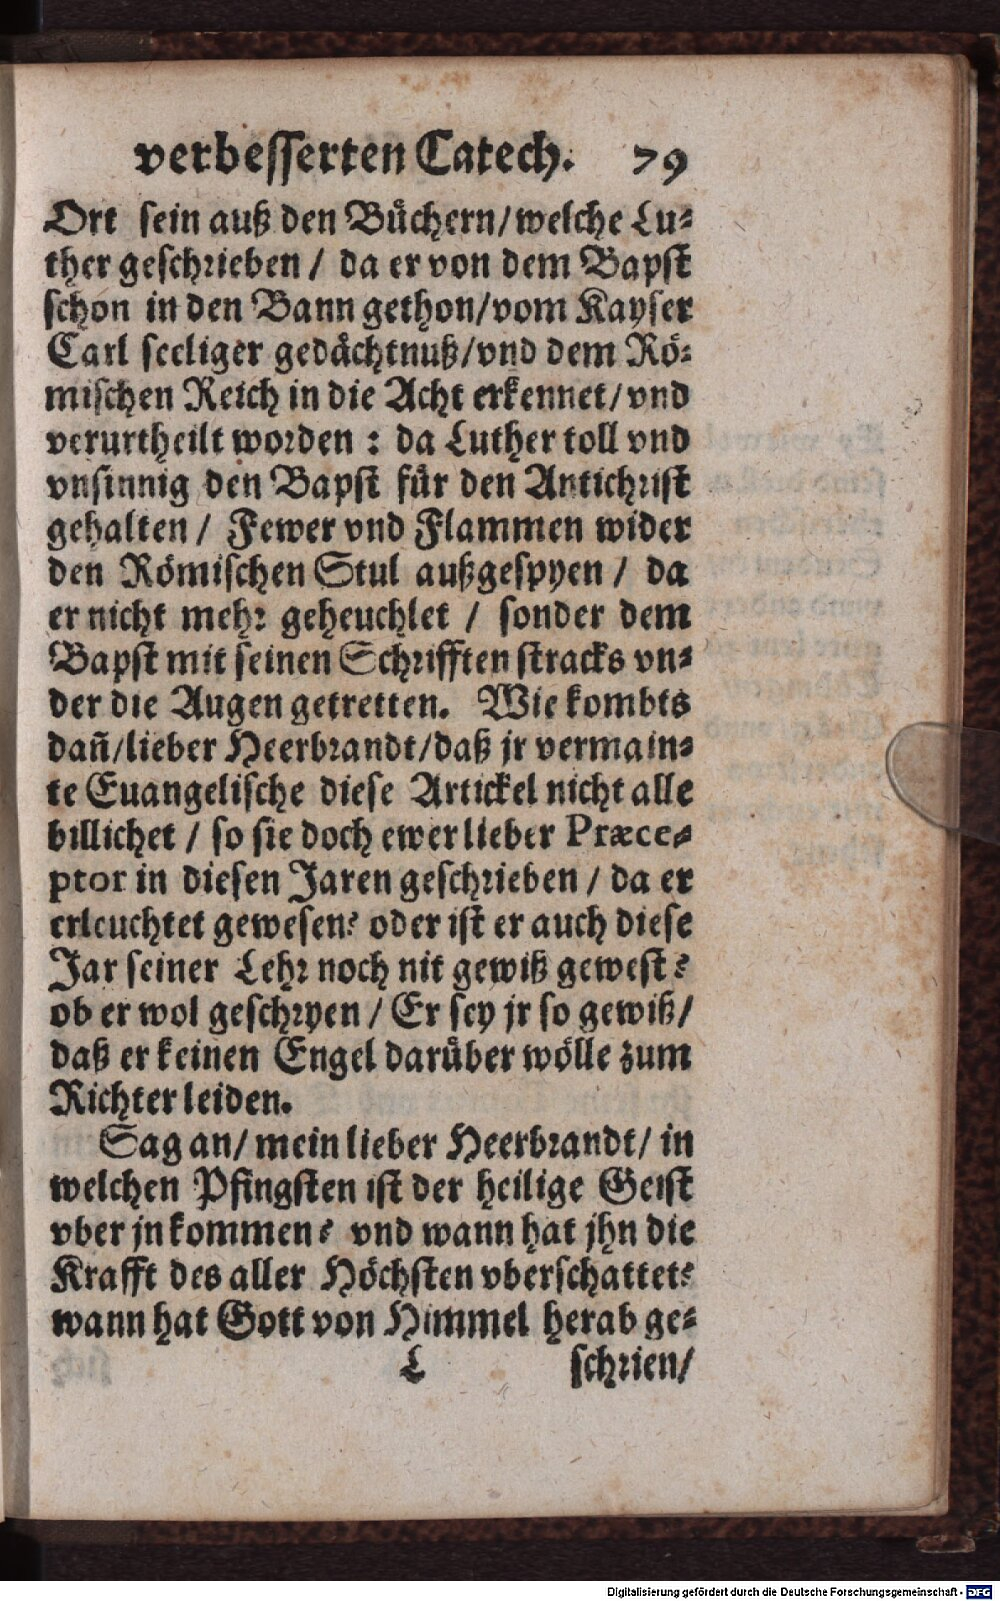 verbesserten Catech. 79
Ort sein auß den Bůchern/welche Lu-
ther geschrieben / da er von dem Bapst
schon in den Bann gethon/vom Kayser
Carl seeliger gedåchtnuß/vnd dem Rö-
mischen Reich in die Acht erkennet/vnd
verurtheilt worden : da Luther toll vnd
vnsinnig den Bapst für den Antichrist
gehalten / Fewer vnd Flammen wider
den Römischen Stul außgespyen / da
er nicht mehr geheuchlet / sonder dem
Bapst mit seinen Schrifften stracks vn-
der die Augen getretten. Wie kombts
dañ/lieber Heerbrandt/daß jr vermain-
te Euangelische diese Artickel nicht alle
billichet / so sie doch ewer lieber Præce-
ptor in diesen Jaren geschrieben / da er
erleuchtet gewesen? oder ist er auch diese
Jar seiner Lehr noch nit gewiß gewest?
ob er wol geschryen / Er sey jr so gewiß/
daß er keinen Engel darůber wölle zum
Richter leiden.
Sag an/ mein lieber Heerbrandt/ in
welchen Pfingsten ist der heilige Geist
vber jn kommen? vnd wann hat jhn die
Krafft des aller Höchsten vberschattet?
wann hat Gott von Himmel herab ge-
L schrien/
Digitalisierung gefördert durch die Deutsche Forschungsgemeinschaft - DFG